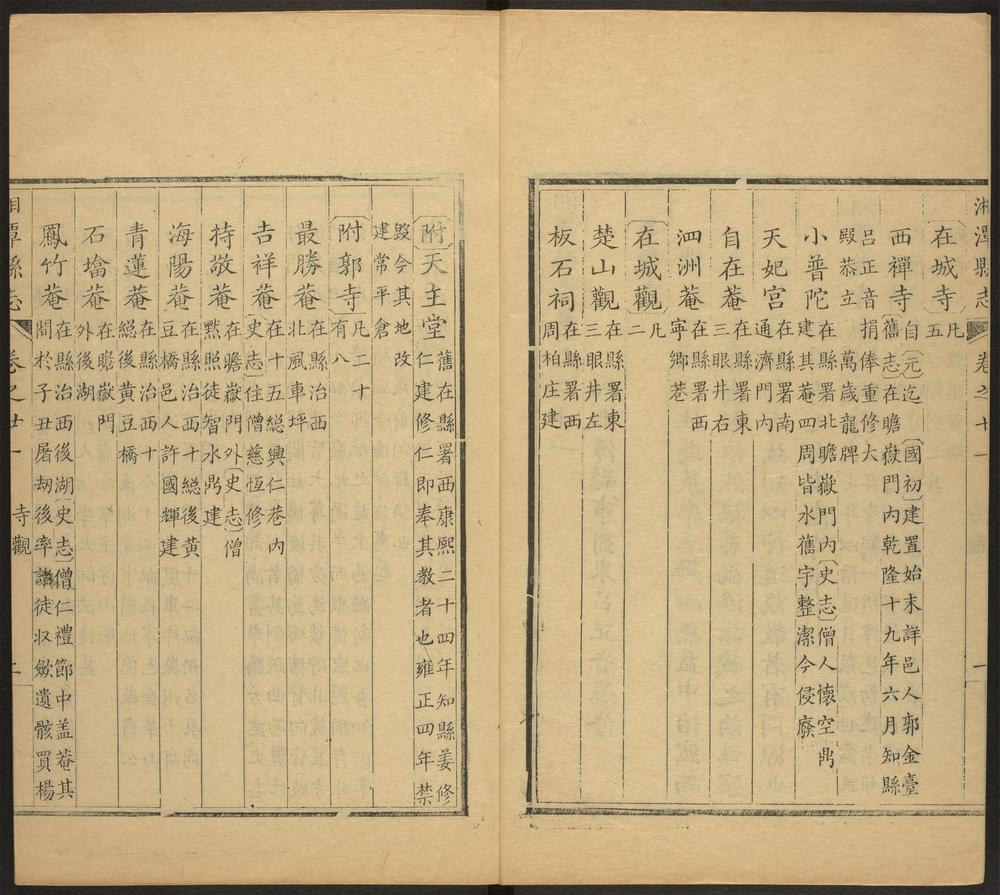 湘潭縣志 卷之十一 一
在城寺 凡
五
西禪寺 自元迄國初建置始末詳邑人郭金臺
舊志在瞻嶽門內乾隆十九年六月知縣
呂正音捐俸重修大
殿恭立萬歲龍牌
小普陀 在縣署北瞻嶽門內史志僧人懷空鼎
建其菴四周皆水舊宇整潔今侵廢
天妃宮 在縣署南
通濟門內
自在菴 在縣署東
三眼井右
泗洲菴 在縣署西
寧鄉巷
在城觀 凡
二
楚山觀 在縣署東
三眼井左
板石祠 在縣署西
周柏庄建
附天主堂 舊在縣署西康熙二十四年知縣姜修
仁建修仁即奉其教者也雍正四年禁
毀今其地改
建常平倉
附郭寺 凡二十
有八
最勝菴 在縣治西
北風車坪
吉祥菴 在十五緫興仁巷內
史志住僧慈恆修
持敬菴 在瞻嶽門外史志僧
黙照徒智水鼎建
海陽菴 在縣治西十緫後黃
豆橋邑人許國輝建
青蓮菴 在縣治西十
緫後黃豆橋
石墖菴 在瞻嶽門
外後湖
鳳竹菴 在縣治西後湖史志僧仁禮節中盖菴其
間於子丑屠刼後率諸徒収歛遺骸買楊
潭縣志 卷之十一 寺觀 二